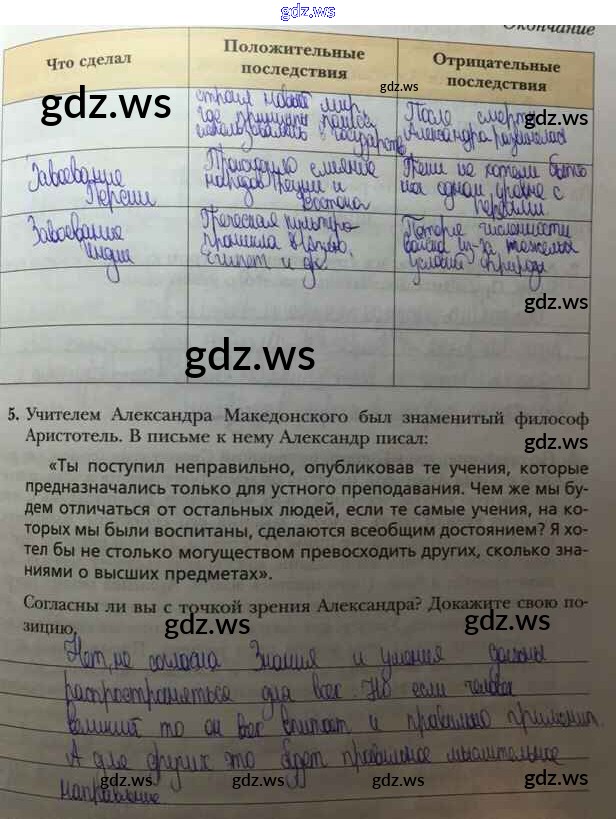 gdz.ws
Окончание
Что сделал
Положительные последствия
Отрицательные последствия
gdz.ws
gdz.ws
строил новый мир,
где принципы полиса
использовались в государств
После смерти
Александра развилась
Завоевание
Персии
Произошло слияние
народов Греции и
Востока
Греки не хотели быть
на одном уровне с
персами
Завоевание
Индии
Греческая культура
проникла в Индию,
Египет и др.
Потеря численности
войска из-за тяжёлых
условий природы
gdz.ws
gdz.ws
5. Учителем Александра Македонского был знаменитый философ
Аристотель. В письме к нему Александр писал:
gdz.ws
«Ты поступил неправильно, опубликовав те учения, которые
предназначались только для устного преподавания. Чем же мы бу-
дем отличаться от остальных людей, если те самые учения, на ко-
торых мы были воспитаны, сделаются всеобщим достоянием? Я хо-
тел бы не столько могуществом превосходить других, сколько зна-
ниями о высших предметах».
Согласны ли вы с точкой зрения Александра? Докажите свою по-
зицию.
gdz.ws
gdz.ws
Нет, не согласна Знания и учения должны
распространяться для всех. Но если человек
великий то он всё впитает и правильно применит.
А для других это будет правильное мыслительное
направление
gdz.ws
gdz.ws
gdz.ws